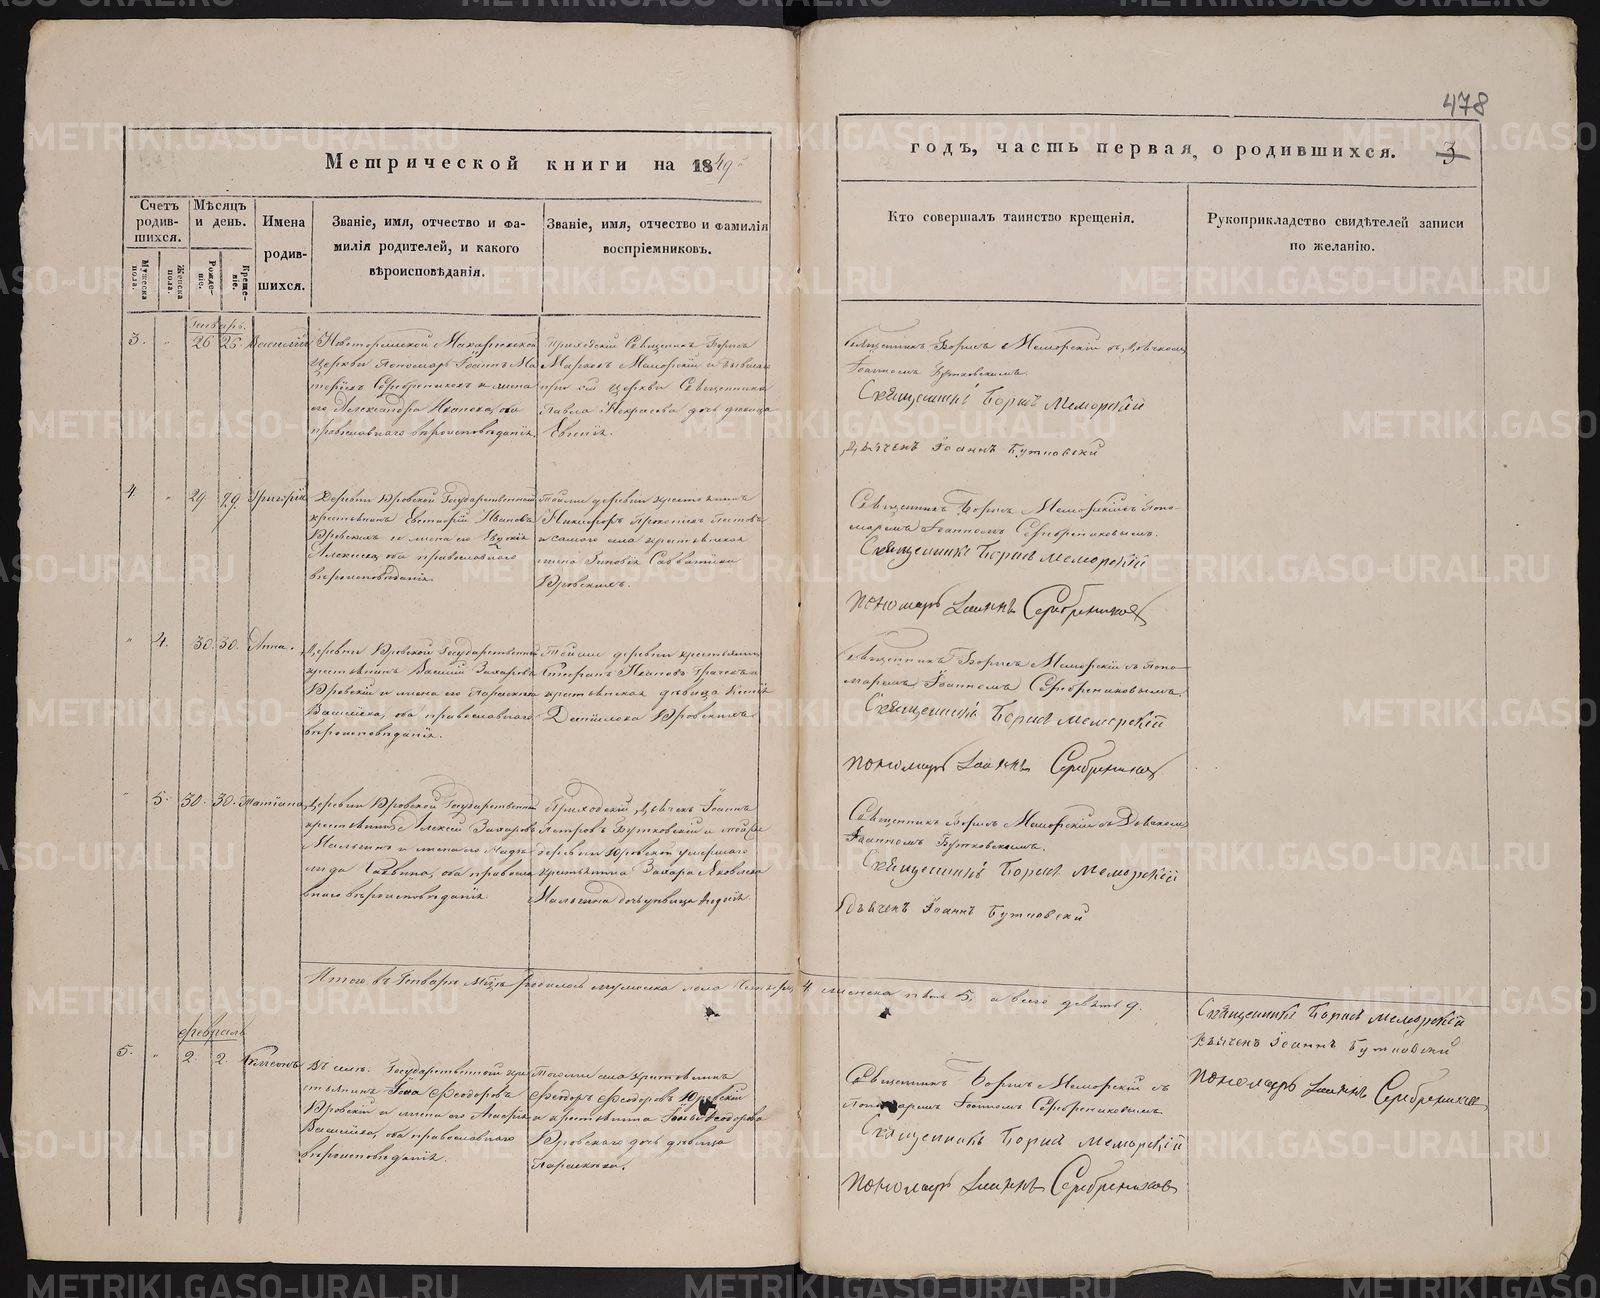 478
Метрической книги на 1849
годъ, часть первая, о родившихся. 3
Счетъ родив-
шихся.
Мужеска пола.
Женска пола.
Мѣсяцъ и день.
Рожде-
нiе.
Креще-
нiе.
Имена
родив-
шихся.
Званiе, имя, отчество и фа-
милiя родителей, и какого
вѣроисповѣданiя.
Званiе, имя, отчество и фамилiя
воспрiемниковъ.
Кто совершалъ таинство крещенiя.
Рукоприкладство свидѣтелей записи
по желанiю.
Генварь.
3. 26 26. Василiй
Церкви Пономарь Iоаннъ
Серебрениковъ и жена
его Александра Иванова, оба
православнаго вѣроисповѣданiя.
Приходскiй Священникъ Борисъ
Марковъ Меморскiй и бывшаго
при сей церкви Священника
Павла Некрасова дочь девица
Евгенiя.
Священникъ Борисъ Меморскiй съ дьячкомъ
Iоанномъ Бутковскимъ.
Священникъ Борисъ Меморскiй
Дьячекъ Iоаннъ Бутковскiй
4. 29 29 Григорiй
Деревни Юровской Государственный
крестьянинъ Ивановъ
Юровскихъ и жена его
оба православнаго
вѣроисповѣданiя.
Тойже деревни крестьянинъ
Никифоръ
и самого села крестьянская
жена Савватiева
Юровскихъ.
Священникъ Борисъ Меморскiй съ поно-
маремъ Iоанномъ Серебрениковымъ.
Священникъ Борисъ Меморскiй
Пономарь Iоаннъ Серебрениковъ
4. 30 30. Анна.
Деревни Юровской Государственный
крестьянинъ Василiй Захаровъ
Юровскiй и жена его Параскева
Васильева, оба православнаго
вѣроисповѣданiя.
Тойже деревни крестьянинъ
Степанъ Ивановъ
крестьянская дѣвица
Данiилова Юровскихъ.
Священникъ Борисъ Меморскiй съ поно-
маремъ Iоанномъ Серебрениковымъ.
Священникъ Борисъ Меморскiй
Пономарь Iоаннъ Серебрениковъ
5. 30. 30. Татiана
Деревни Юровской Государственный
крестьянинъ Алексей Захаровъ
Мальгинъ и жена его
Саввина, оба правосла-
внаго вѣроисповѣданiя.
Приходскiй Дьячекъ Iоаннъ
Петровъ Бутковскiй и тойже
деревни Юровской умершаго
крестьянина Захара Яковлева
Мальгина дочь девица
Священникъ Борисъ Меморскiй съ Дьячкомъ
Iоанномъ Бутковскимъ.
Священникъ Борисъ Меморскiй
Дьячекъ Iоаннъ Бутковскiй
Итого въ Генварѣ Мцѣ родилось мужеска пола четыре 4, женска пять 5, а всего девять 9.
Священникъ Борисъ Меморскiй
Дьячекъ Iоаннъ Бутковскiй
Пономарь Iоаннъ Серебрениковъ
Февраль
5. 2. 2. Симеонъ
Въ селѣ Государственный кре-
стьянинъ Iона Феодоровъ
Юровскiй и жена его
Васильева, оба православнаго
вѣроисповѣданiя.
Тогоже села крестьянинъ
Феодоръ Феодоровъ Юровскiй
и крестьянина Феодорова
Юровскаго дочь дѣвица
Параскева.
Священникъ Борисъ Меморскiй съ
Пономаремъ Iоанномъ Серебрениковымъ.
Священникъ Борисъ Меморскiй
Пономарь Iоаннъ Серебрениковъ
METRIKI.GASO-URAL.RU